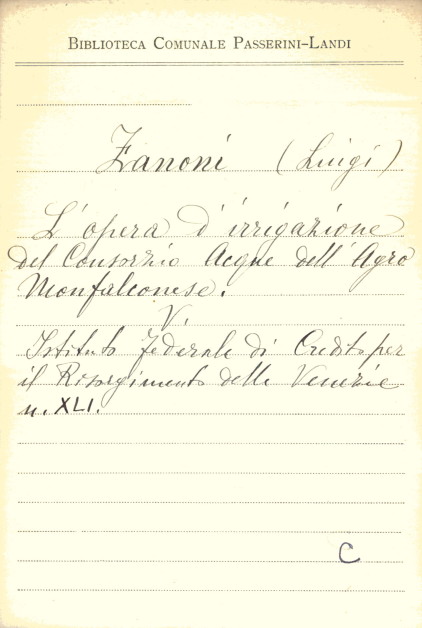 BIBLIOTECA COMUNALE PASSERINI-LANDI
Zanoni (Luigi)
L'opera d'irrigazione
del Consorzio Acque dell'Agro
Monfalconese.
V.
Istituto Federale di Credito per
il Risorgimento delle Venezie
n. XLI.
C